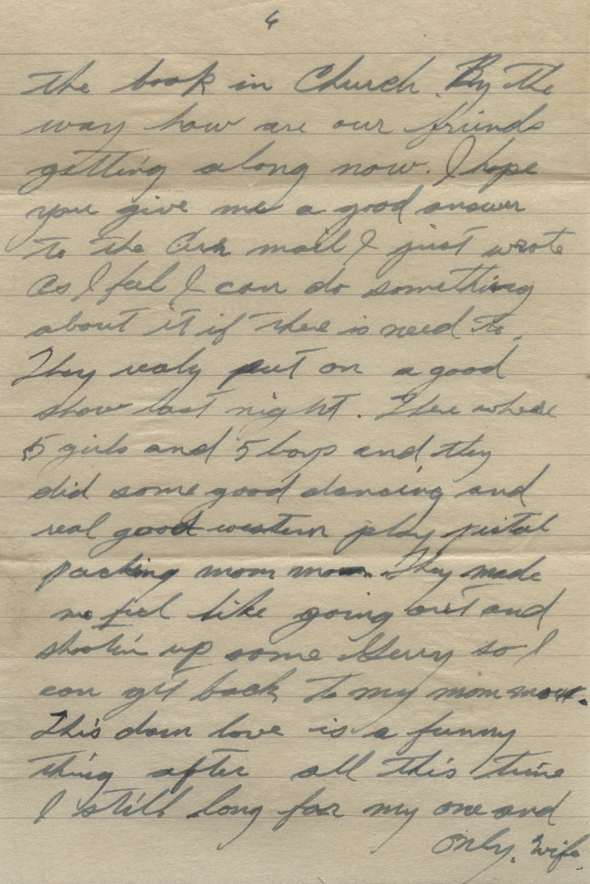 4
the book in Church. By the
way how are our friends
getting along now. I hope
you give me a good answer
to the mail I just wrote
as I feel I can do something
about it if there is need to.
They realy put on a good
show last night. There where
5 girls and 5 boys and they
did some good dancing and
real good western play pistol
packing mom mom. They made
me feel like going out and
shootin up some Gerry so I
can git back to my mom mom.
This darn love is a funny
thing after all this time
I still long for my one and
only. wife.